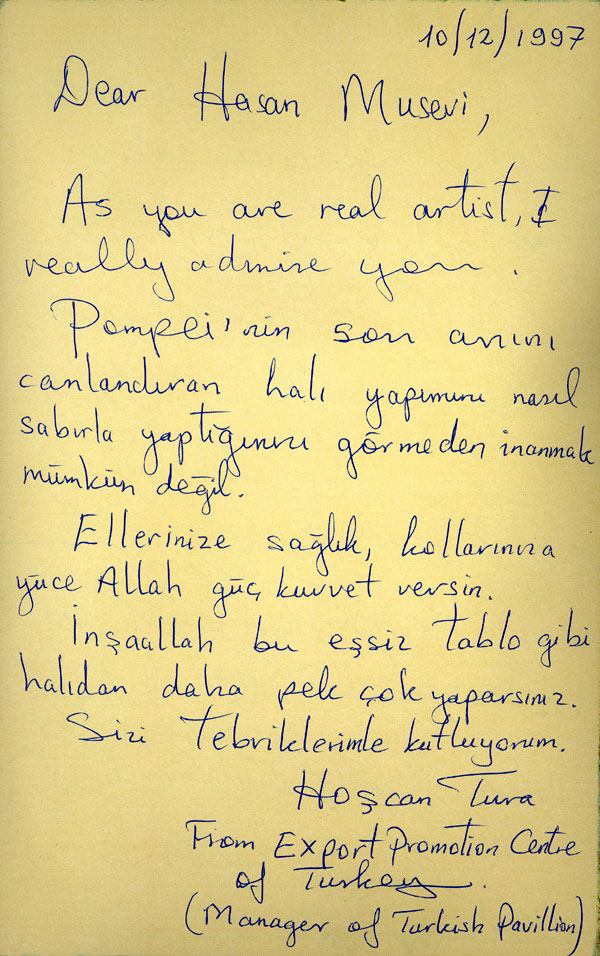 10/12/1997
Dear Hasan Musevi,
As you are real artist, I
really admire you.
Pompei'nin son anını
canlandıran halı yapımını nasıl
sabırla yaptığınızı görmeden inanmak
mümkün değil.
Ellerinize sağlık, kollarınıza
yüce Allah güç kuvvet versin.
İnşaallah bu eşsiz tablo gibi
halıdan daha pek çok yaparsınız.
Sizi tebriklerimle kutluyorum.
Hoşcan Tura
From Export Promotion Centre
of Turkey.
(Manager of Turkish Pavillion)